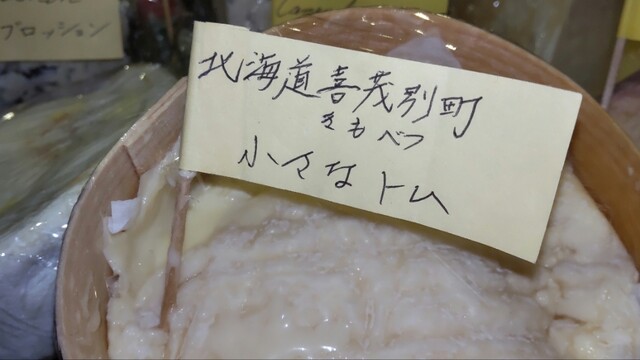 ブロッション
北海道喜茂別町
きもべつ
小さなトム